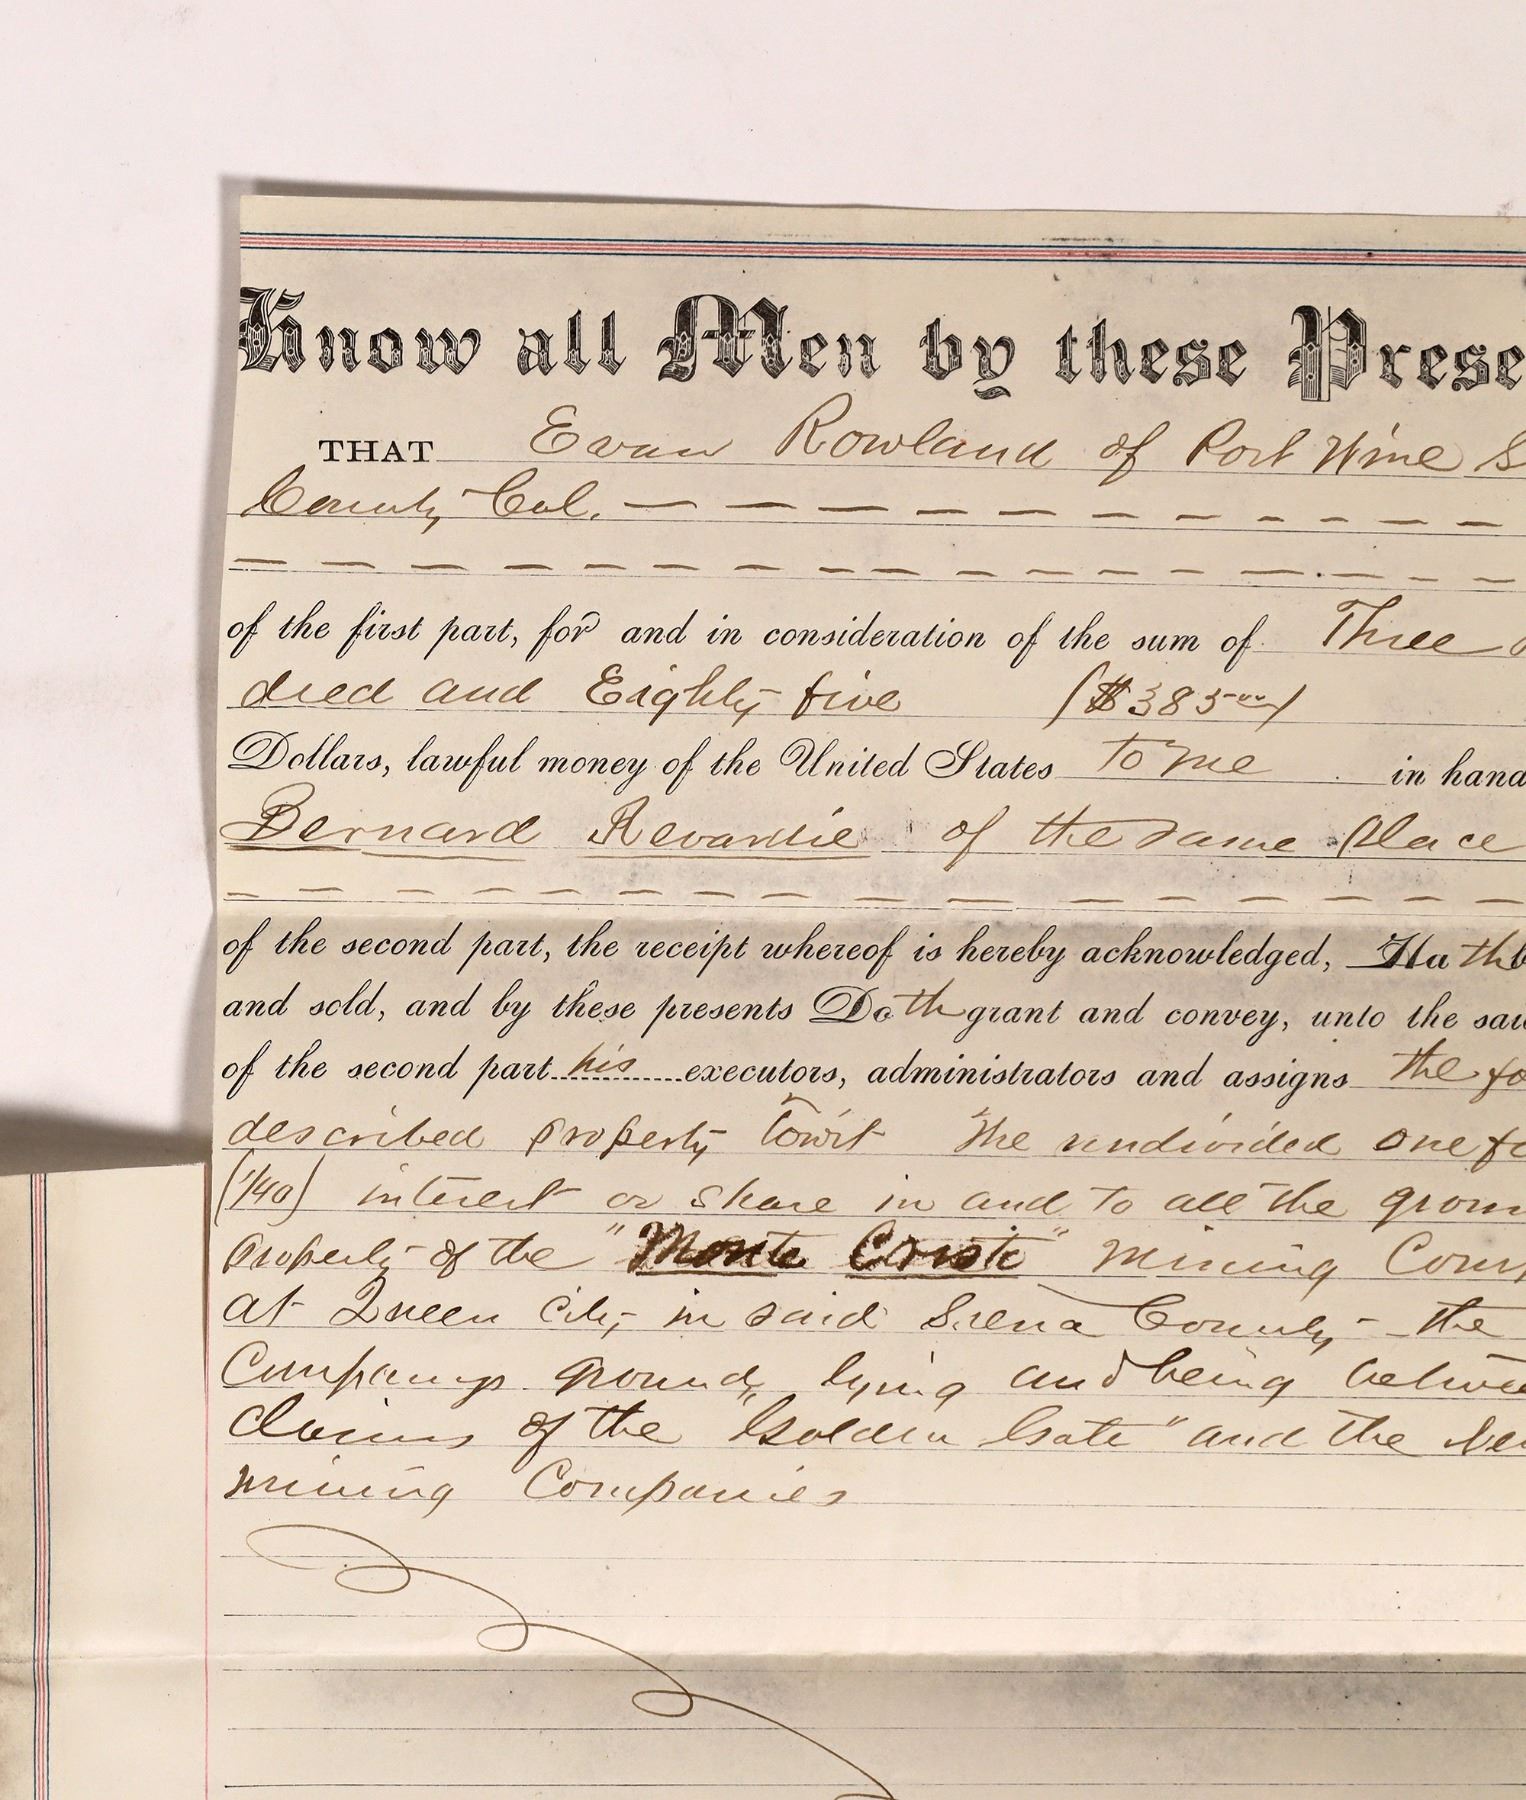 Know all Men by these Prese
THAT Evan Rowland of Port Wine S
County Cal.
of the first part, for and in consideration of the sum of Three
dred and Eighty five ($385 00)
Dollars, lawful money of the United States to me in hand
Bernard Revardie of the same Place
of the second part, the receipt whereof is hereby acknowledged, Hathb
and sold, and by these presents Doth grant and convey, unto the sai
of the second part his executors, administrators and assigns the fo
described property towit The undivided one fo
(1/40) interest or share in and to all the groun
Property of the "Monte Cristo" Mining Com
at Queen City in said Sierra County - the
Companys ground, lying and being betwee
claims of the "Golden Gate" and the New
mining Companies